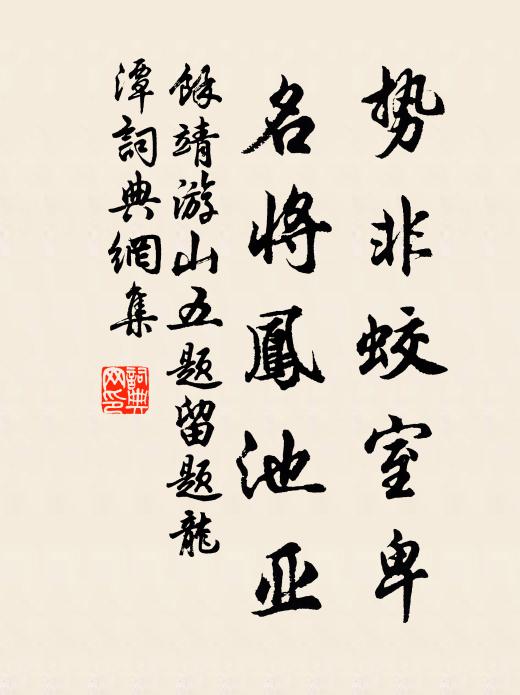 势非蛟室卑
名將鳳池亚
餘靖游山五题留题龍
潭詞典網集
詞典网印